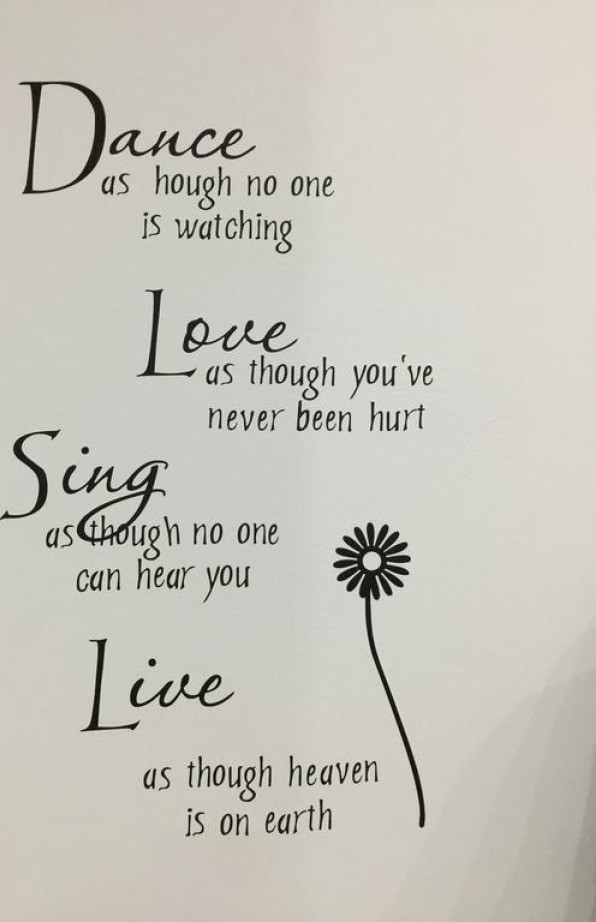 Dance
as hough no one
is watching
Love
as though you've
never been hurt
Sing
as though no one
can hear you
Live
as though heaven
is on earth